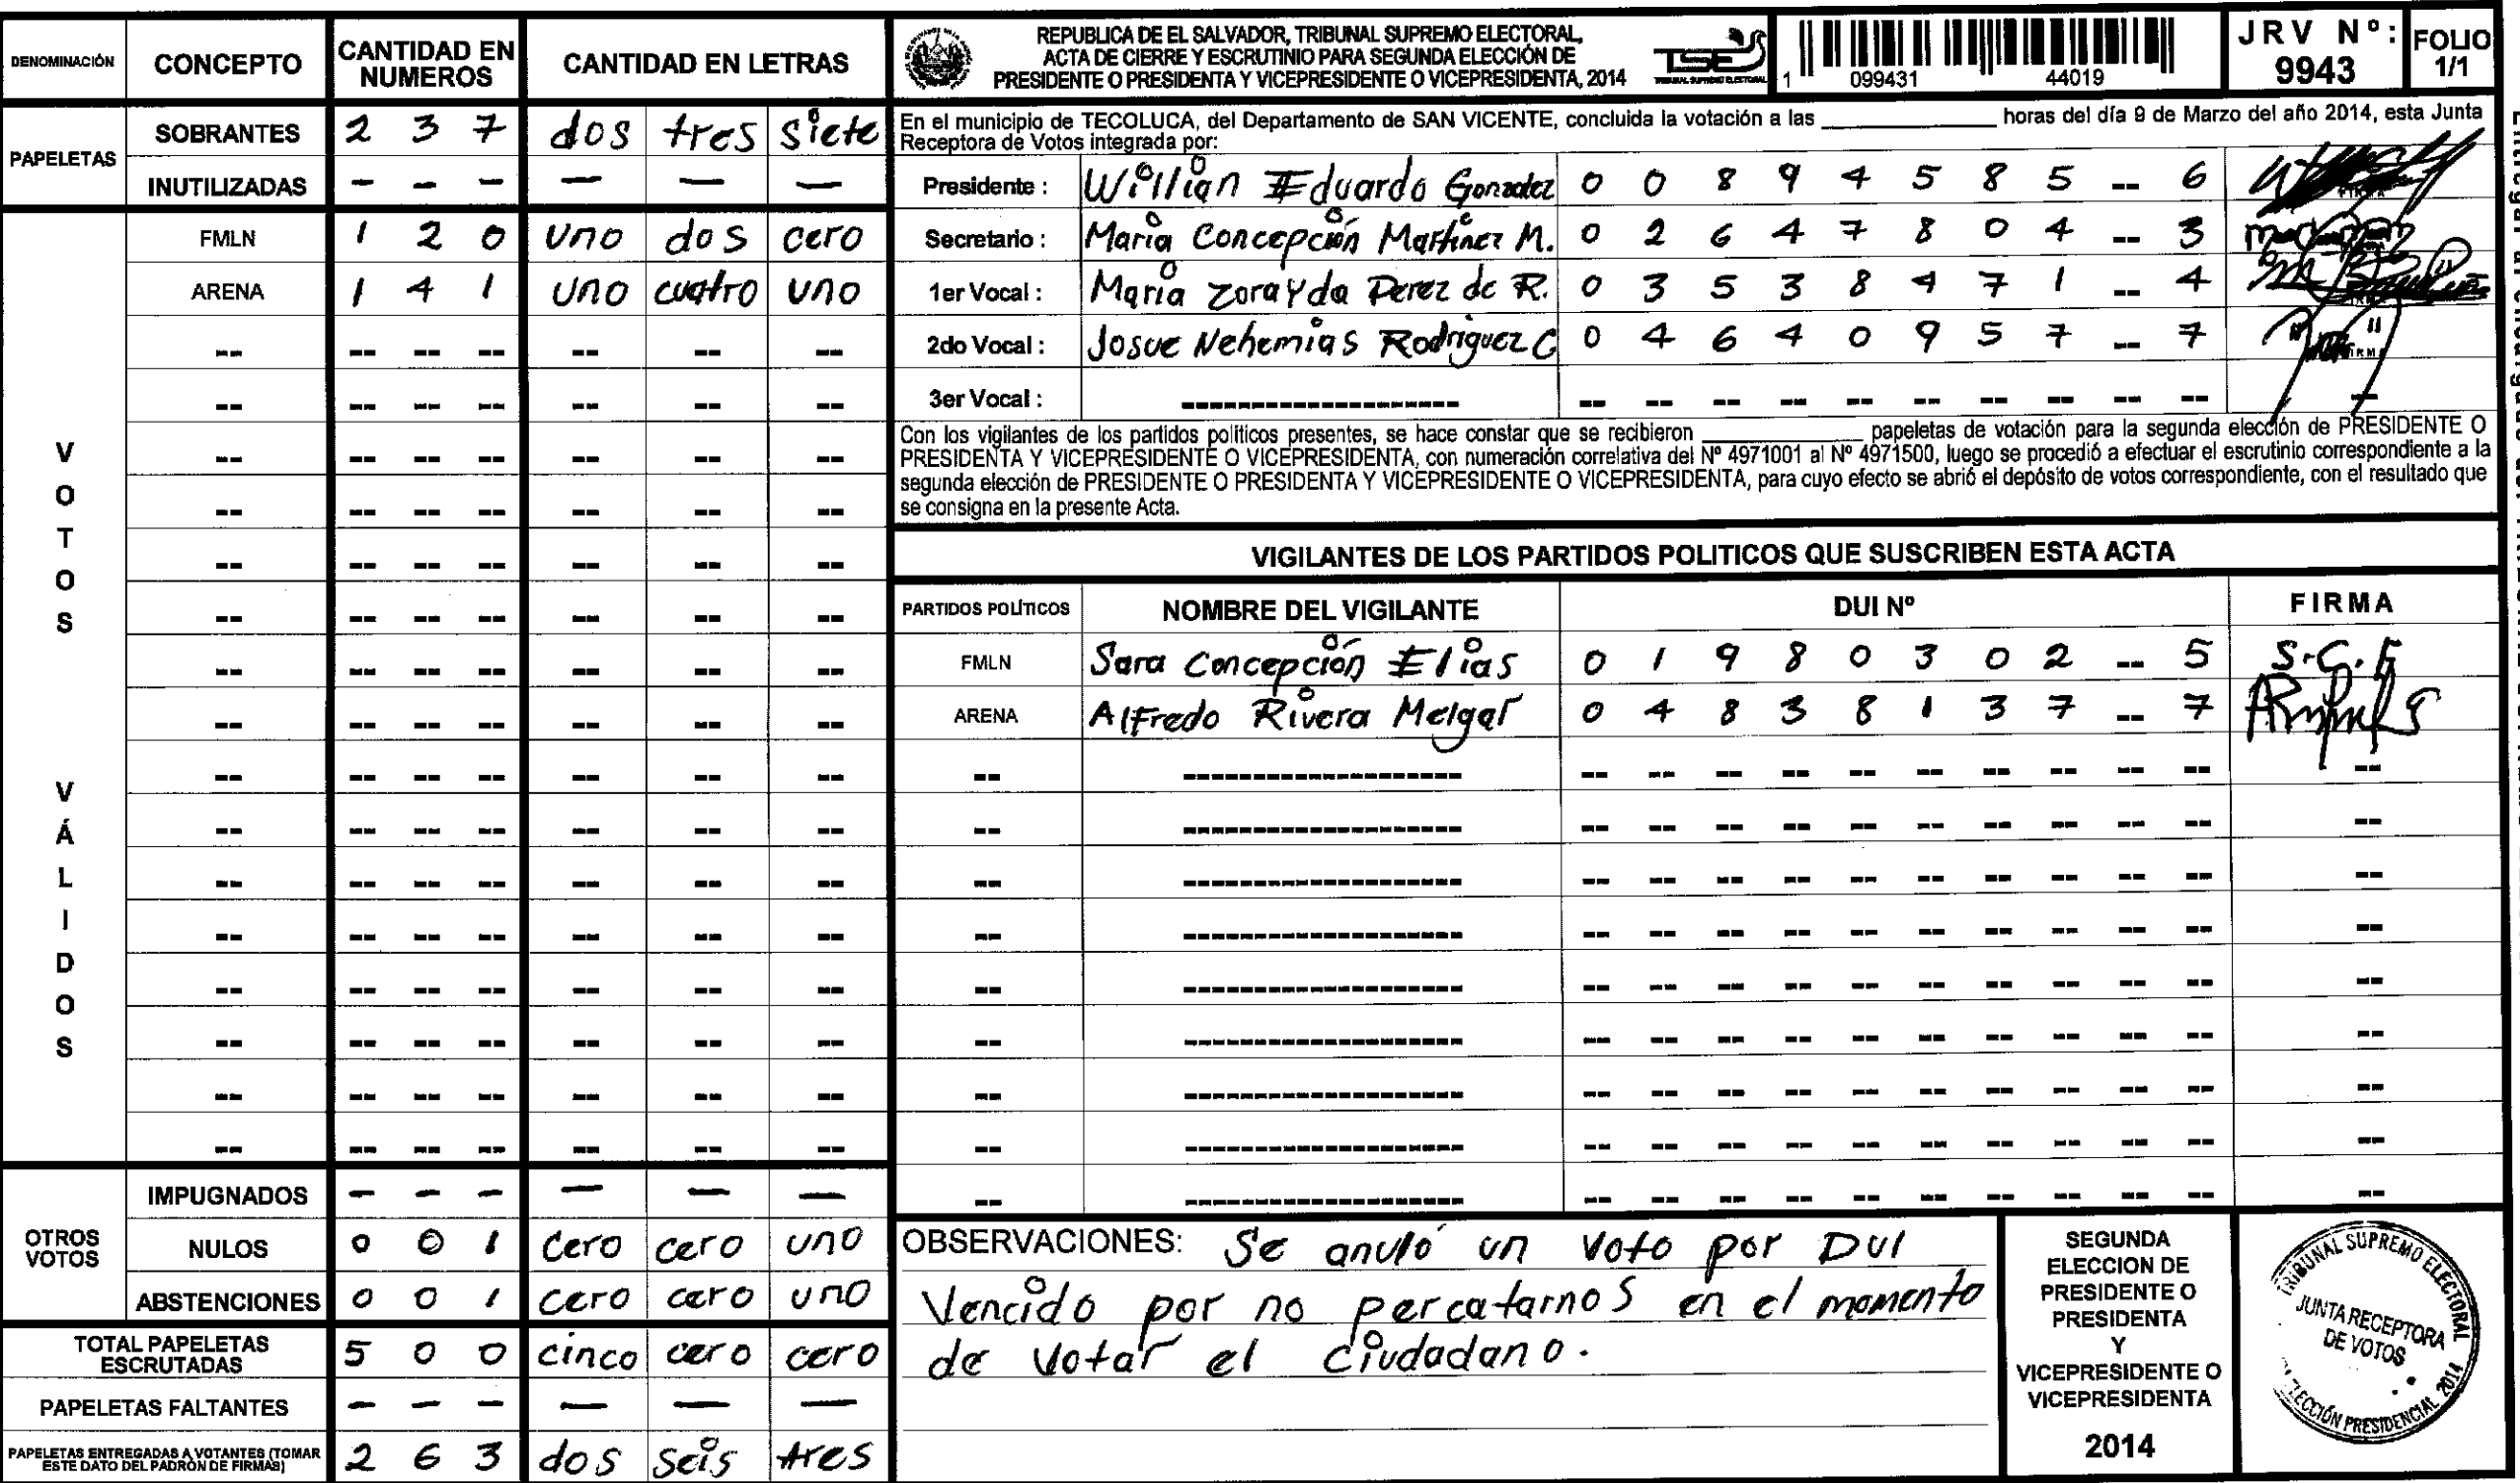 DENOMINACIÓN CONCEPTO CANTIDAD EN NUMEROS CANTIDAD EN LETRAS
PAPELETAS
SOBRANTES 2 3 7 dos tres siete
INUTILIZADAS - - - - - -
VOTOS VÁLIDOS
FMLN 1 2 0 uno dos cero
ARENA 1 4 1 uno cuatro uno
OTROS VOTOS
IMPUGNADOS - - - - - -
NULOS 0 0 1 cero cero uno
ABSTENCIONES 0 0 1 cero cero uno
TOTAL PAPELETAS ESCRUTADAS 5 0 0 cinco cero cero
PAPELETAS FALTANTES - - - - - -
PAPELETAS ENTREGADAS A VOTANTES (TOMAR ESTE DATO DEL PADRÓN DE FIRMAS) 2 6 3 dos seis tres
REPUBLICA DE EL SALVADOR, TRIBUNAL SUPREMO ELECTORAL,
ACTA DE CIERRE Y ESCRUTINIO PARA SEGUNDA ELECCIÓN DE
PRESIDENTE O PRESIDENTA Y VICEPRESIDENTE O VICEPRESIDENTA, 2014
TSE
TRIBUNAL SUPREMO ELECTORAL
1 099431 44019
JRV Nº: 9943
FOLIO 1/1
En el municipio de TECOLUCA, del Departamento de SAN VICENTE, concluida la votación a las ____ horas del día 9 de Marzo del año 2014, esta Junta
Receptora de Votos integrada por:
Presidente : Willian Eduardo Gonzalez 0 0 8 9 4 5 8 5 -- 6
Secretario : Maria Concepción Martinez M. 0 2 6 4 7 8 0 4 -- 3
1er Vocal : Maria Zorayda Perez de R. 0 3 5 3 8 4 7 1 -- 4
2do Vocal : Josue Nehemias Rodriguez C 0 4 6 4 0 9 5 7 -- 7
3er Vocal :
Con los vigilantes de los partidos políticos presentes, se hace constar que se recibieron ____ papeletas de votación para la segunda elección de PRESIDENTE O
PRESIDENTA Y VICEPRESIDENTE O VICEPRESIDENTA, con numeración correlativa del Nº 4971001 al Nº 4971500, luego se procedió a efectuar el escrutinio correspondiente a la
segunda elección de PRESIDENTE O PRESIDENTA Y VICEPRESIDENTE O VICEPRESIDENTA, para cuyo efecto se abrió el depósito de votos correspondiente, con el resultado que
se consigna en la presente Acta.
VIGILANTES DE LOS PARTIDOS POLITICOS QUE SUSCRIBEN ESTA ACTA
PARTIDOS POLÍTICOS NOMBRE DEL VIGILANTE DUI Nº FIRMA
FMLN Sara Concepción Elias 0 1 9 8 0 3 0 2 -- 5 S.C.E
ARENA Alfredo Rivera Melgar 0 4 8 3 8 1 3 7 -- 7
OBSERVACIONES: Se anuló un voto por DUI
Vencido por no percatarnos en el momento
de votar el ciudadano.
SEGUNDA
ELECCION DE
PRESIDENTE O
PRESIDENTA
Y
VICEPRESIDENTE O
VICEPRESIDENTA
2014
TRIBUNAL SUPREMO ELECTORAL
JUNTA RECEPTORA
DE VOTOS
ELECCIÓN PRESIDENCIAL 2014